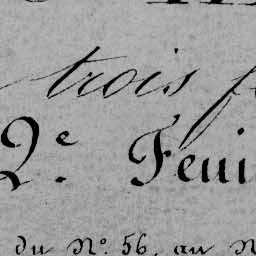 trois
2e. Feui
du No. 56, au N